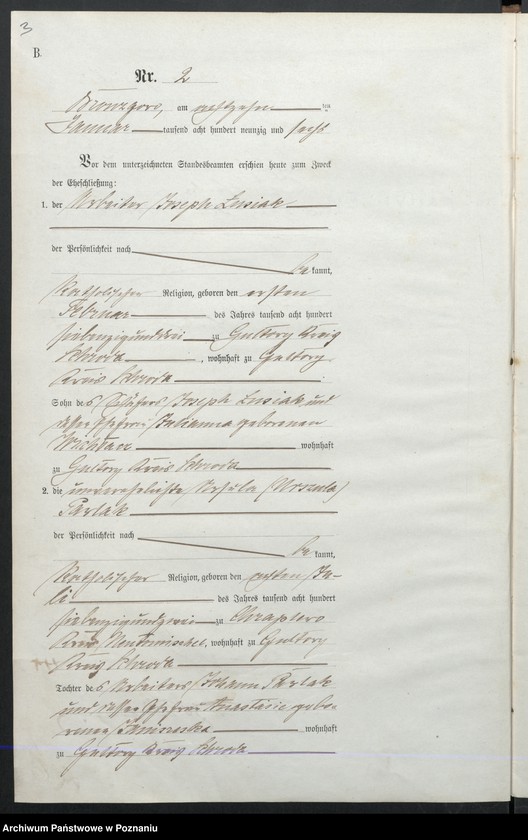 3
B.
Nr. 2
am achtzehn ten
Januar tausend acht hundert neunzig und sechs
Vor dem unterzeichneten Standesbeamten erschien heute zum Zweck
der Eheschließung:
1. der Arbeiter Joseph Lusiak
der Persönlichkeit nach
be kannt,
katholischer Religion, geboren den ersten
Februar des Jahres tausend acht hundert
siebenzig und drei zu Gultowy Kreis
Schroda, wohnhaft zu Gultowy
Kreis Schroda
Sohn des Joseph Lusiak und
dessen Ehefrau Julianna geborenen
wohnhaft
zu Gultowy Kreis Schroda
2. die unverehelichte Ursula (Urszula)
Parlak
der Persönlichkeit nach
be kannt,
katholischer Religion, geboren den Ju-
li des Jahres tausend acht hundert
siebenzig und zwei zu
Kreis wohnhaft zu Gultowy
Kreis Schroda
Tochter des Arbeiters Johann Parlak
und dessen Ehefrau Anastasie gebo-
renen wohnhaft
zu Gultowy Kreis Schroda
Archiwum Państwowe w Poznaniu